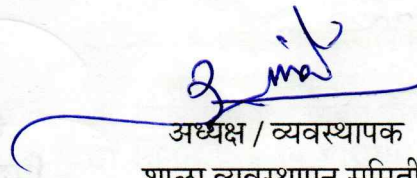 अध्यक्ष / व्यवस्थापक
शाला व्यवस्थापन समिती